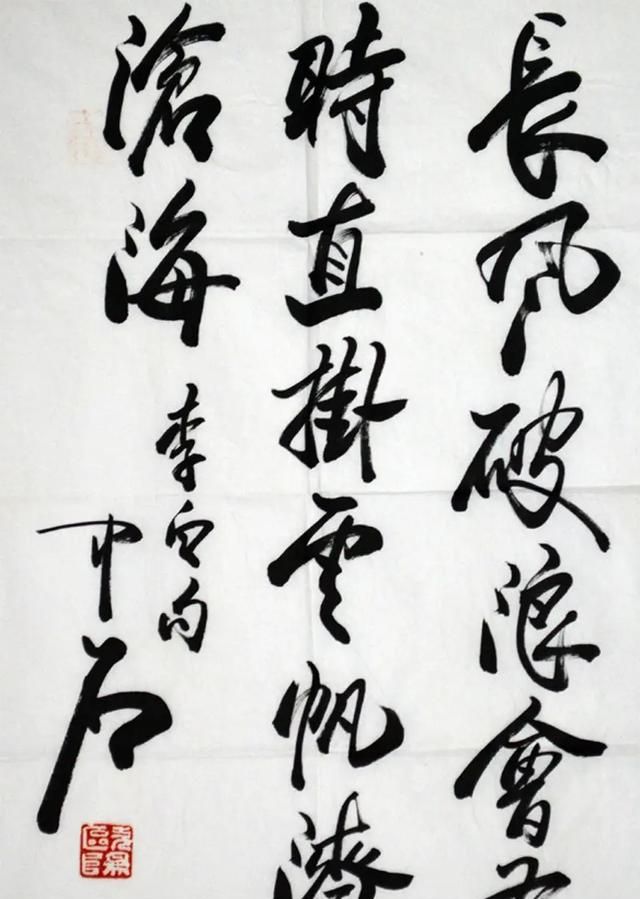 長風破浪會
時直掛雲帆濟
滄海
李白句
中石